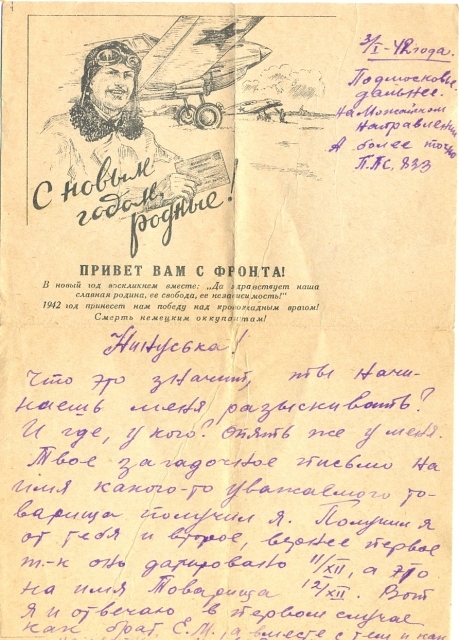 3/I-42 года.
Подмосковье
дальнее.
На Можайском
направлении
А более точно
П.П.С. 833
С новым
годом,
родные!
ПРИВЕТ ВАМ С ФРОНТА!
В новый год воскликнем вместе: „Да здравствует наша
славная родина, ее свобода, ее независимость!"
1942 год принесет нам победу над кровожадным врагом!
Смерть немецким оккупантам!
Нинуська!
Что это значит, ты начи-
наешь меня разыскивать?
И где, у кого? Опять же у меня.
Твое загадочное письмо на
имя какого-то уважаемого то-
варища получил я. Получил я
от тебя и второе, вернее первое
т-к оно датировано 11/XII, а это
на имя Товарища 12/XII. Вот
я и отвечаю в первом случае
как брат Е.М., а вместе с тем и как